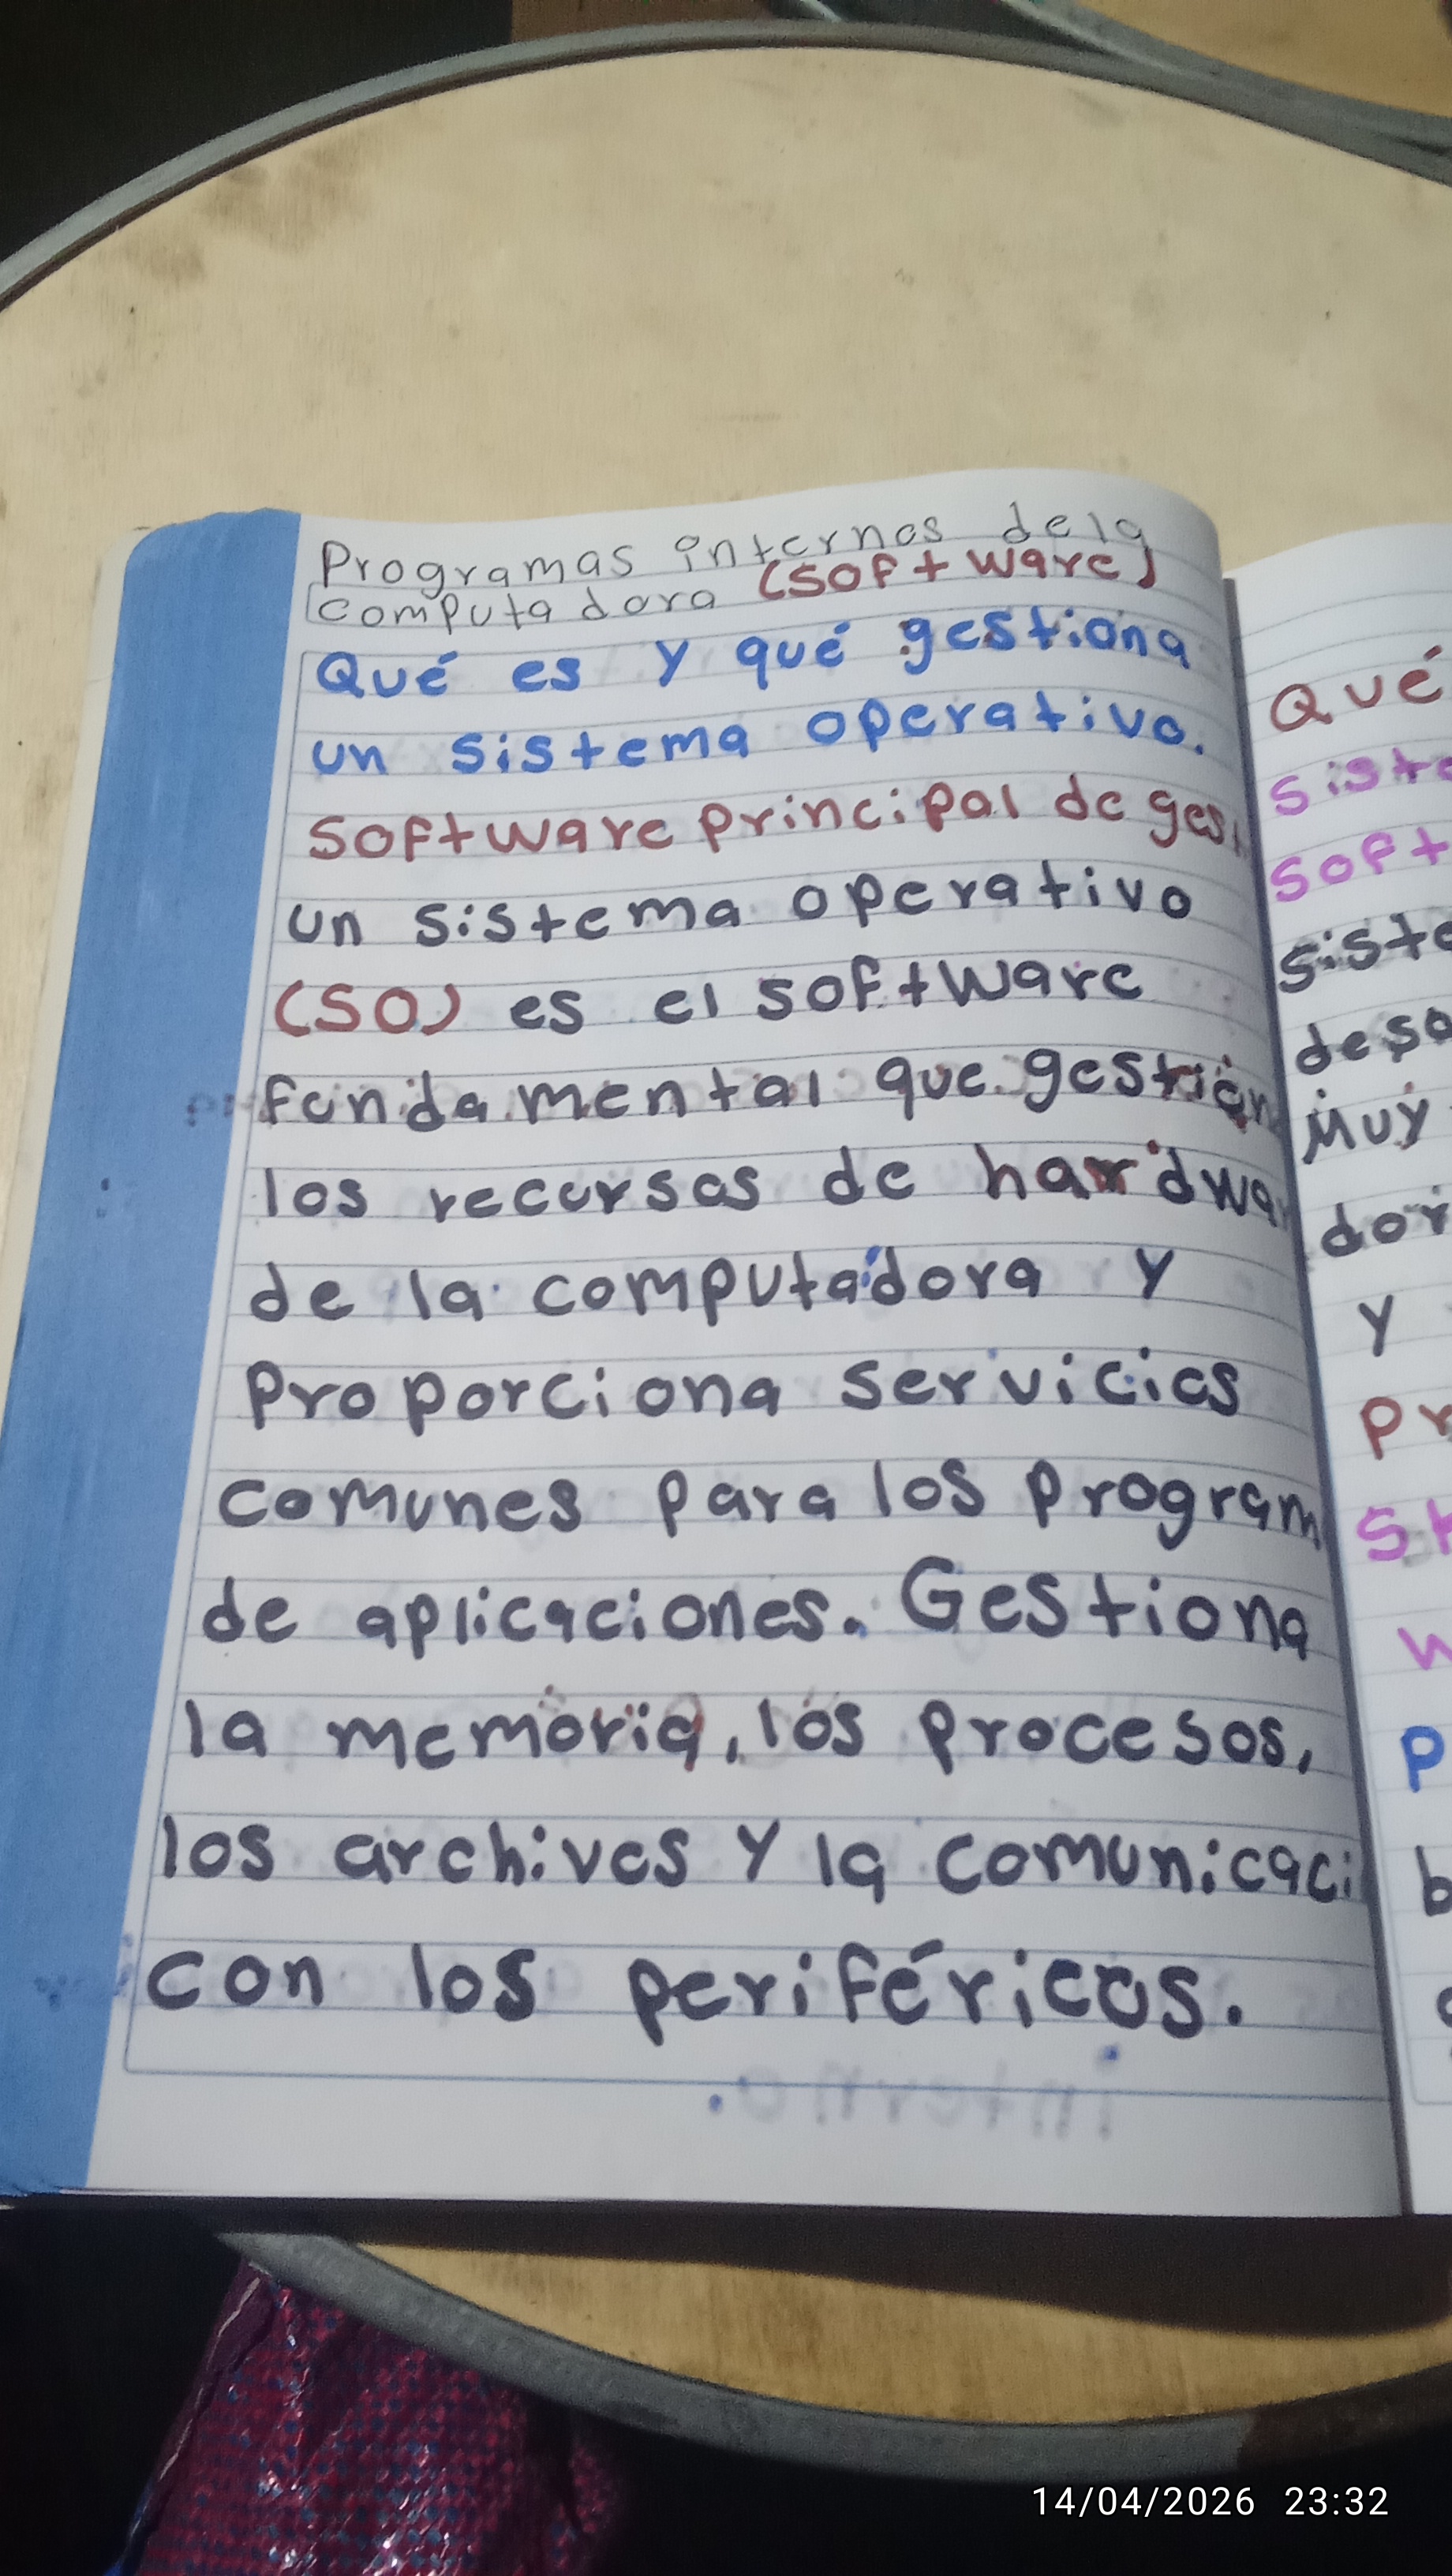 Programas internos de la
computadora (software)
Qué es y qué gestiona
un sistema operativo.
Software principal de ges
un sistema operativo
(SO) es el software
fundamental que gestion
los recursos de hardwa
de la computadora y
Proporciona servicios
comunes para los program
de aplicaciones. Gestiona
la memoria, los procesos,
los archivos y la comunicaci
con los periféricos.
Qué
siste
soft
siste
desa
Muy
dor
y
Pr
W
P
b
14/04/2026 23:32